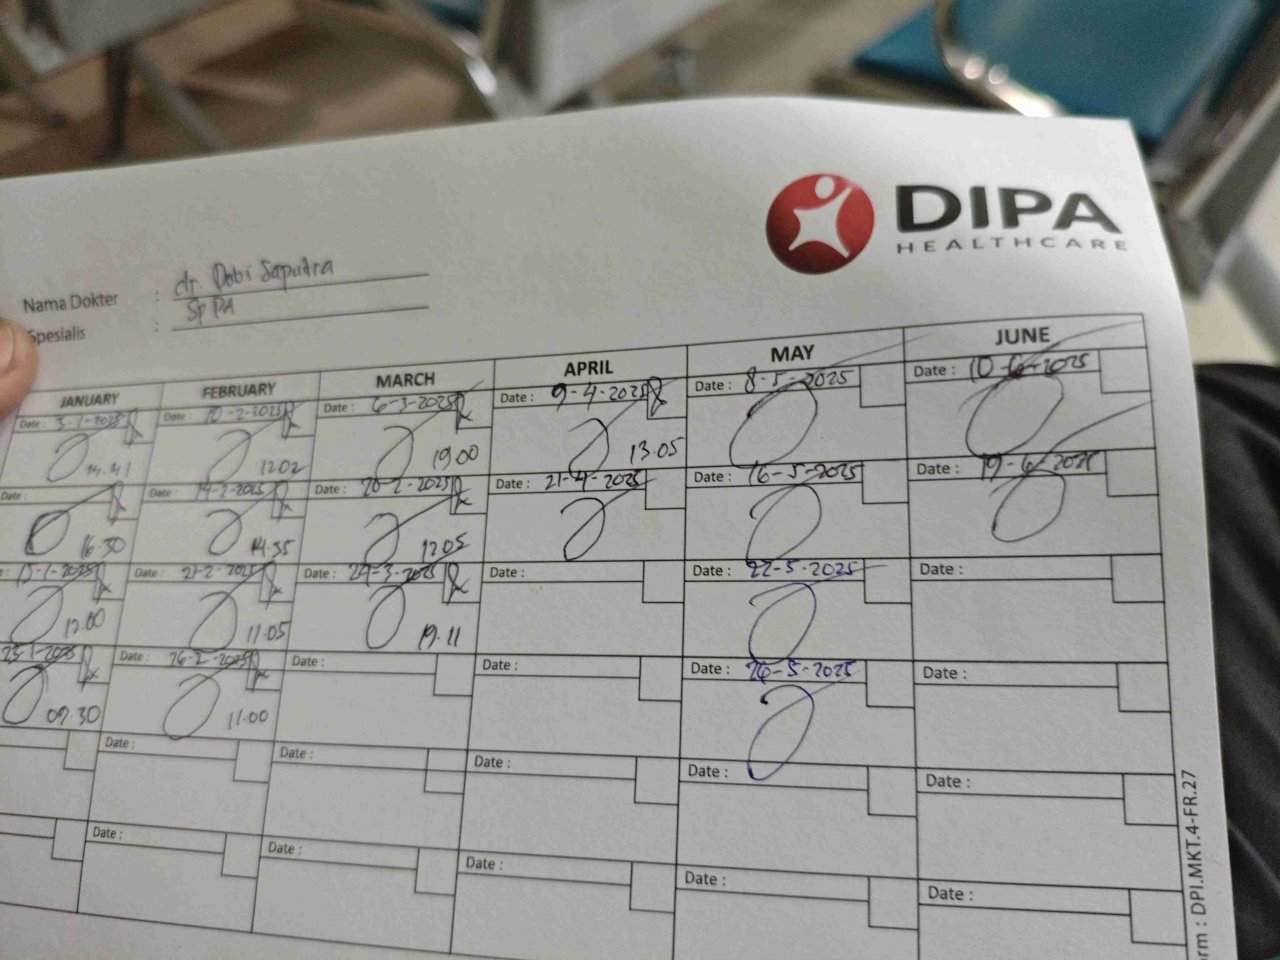 DIPA
HEALTHCARE
Nama Dokter : dr. Dobi Saputra
Spesialis : Sp PA
JANUARY FEBRUARY MARCH APRIL MAY JUNE
Date : 3-1-2025 Date : 10-2-2025 Date : 6-3-2025 Date : 9-4-2025 Date : 8-5-2025 Date : 10-6-2025
14.41 12.02 19.00 13.05
Date : Date : 14-2-2025 Date : Date : 21-4-2025 Date : 16-5-2025 Date : 19-6-2025
16.30 14.35 12.05
Date : 21-2-2025 Date : 24-3-2025 Date : Date : 22-5-2025 Date :
12.00 11.05 19.11
23-1-2025 Date : 26-2-2025 Date : Date : Date : 26-5-2025 Date :
09.30 11.00
Date : Date : Date : Date : Date :
Date : Date : Date : Date : Date :
rm : DPI.MKT.4-FR.27